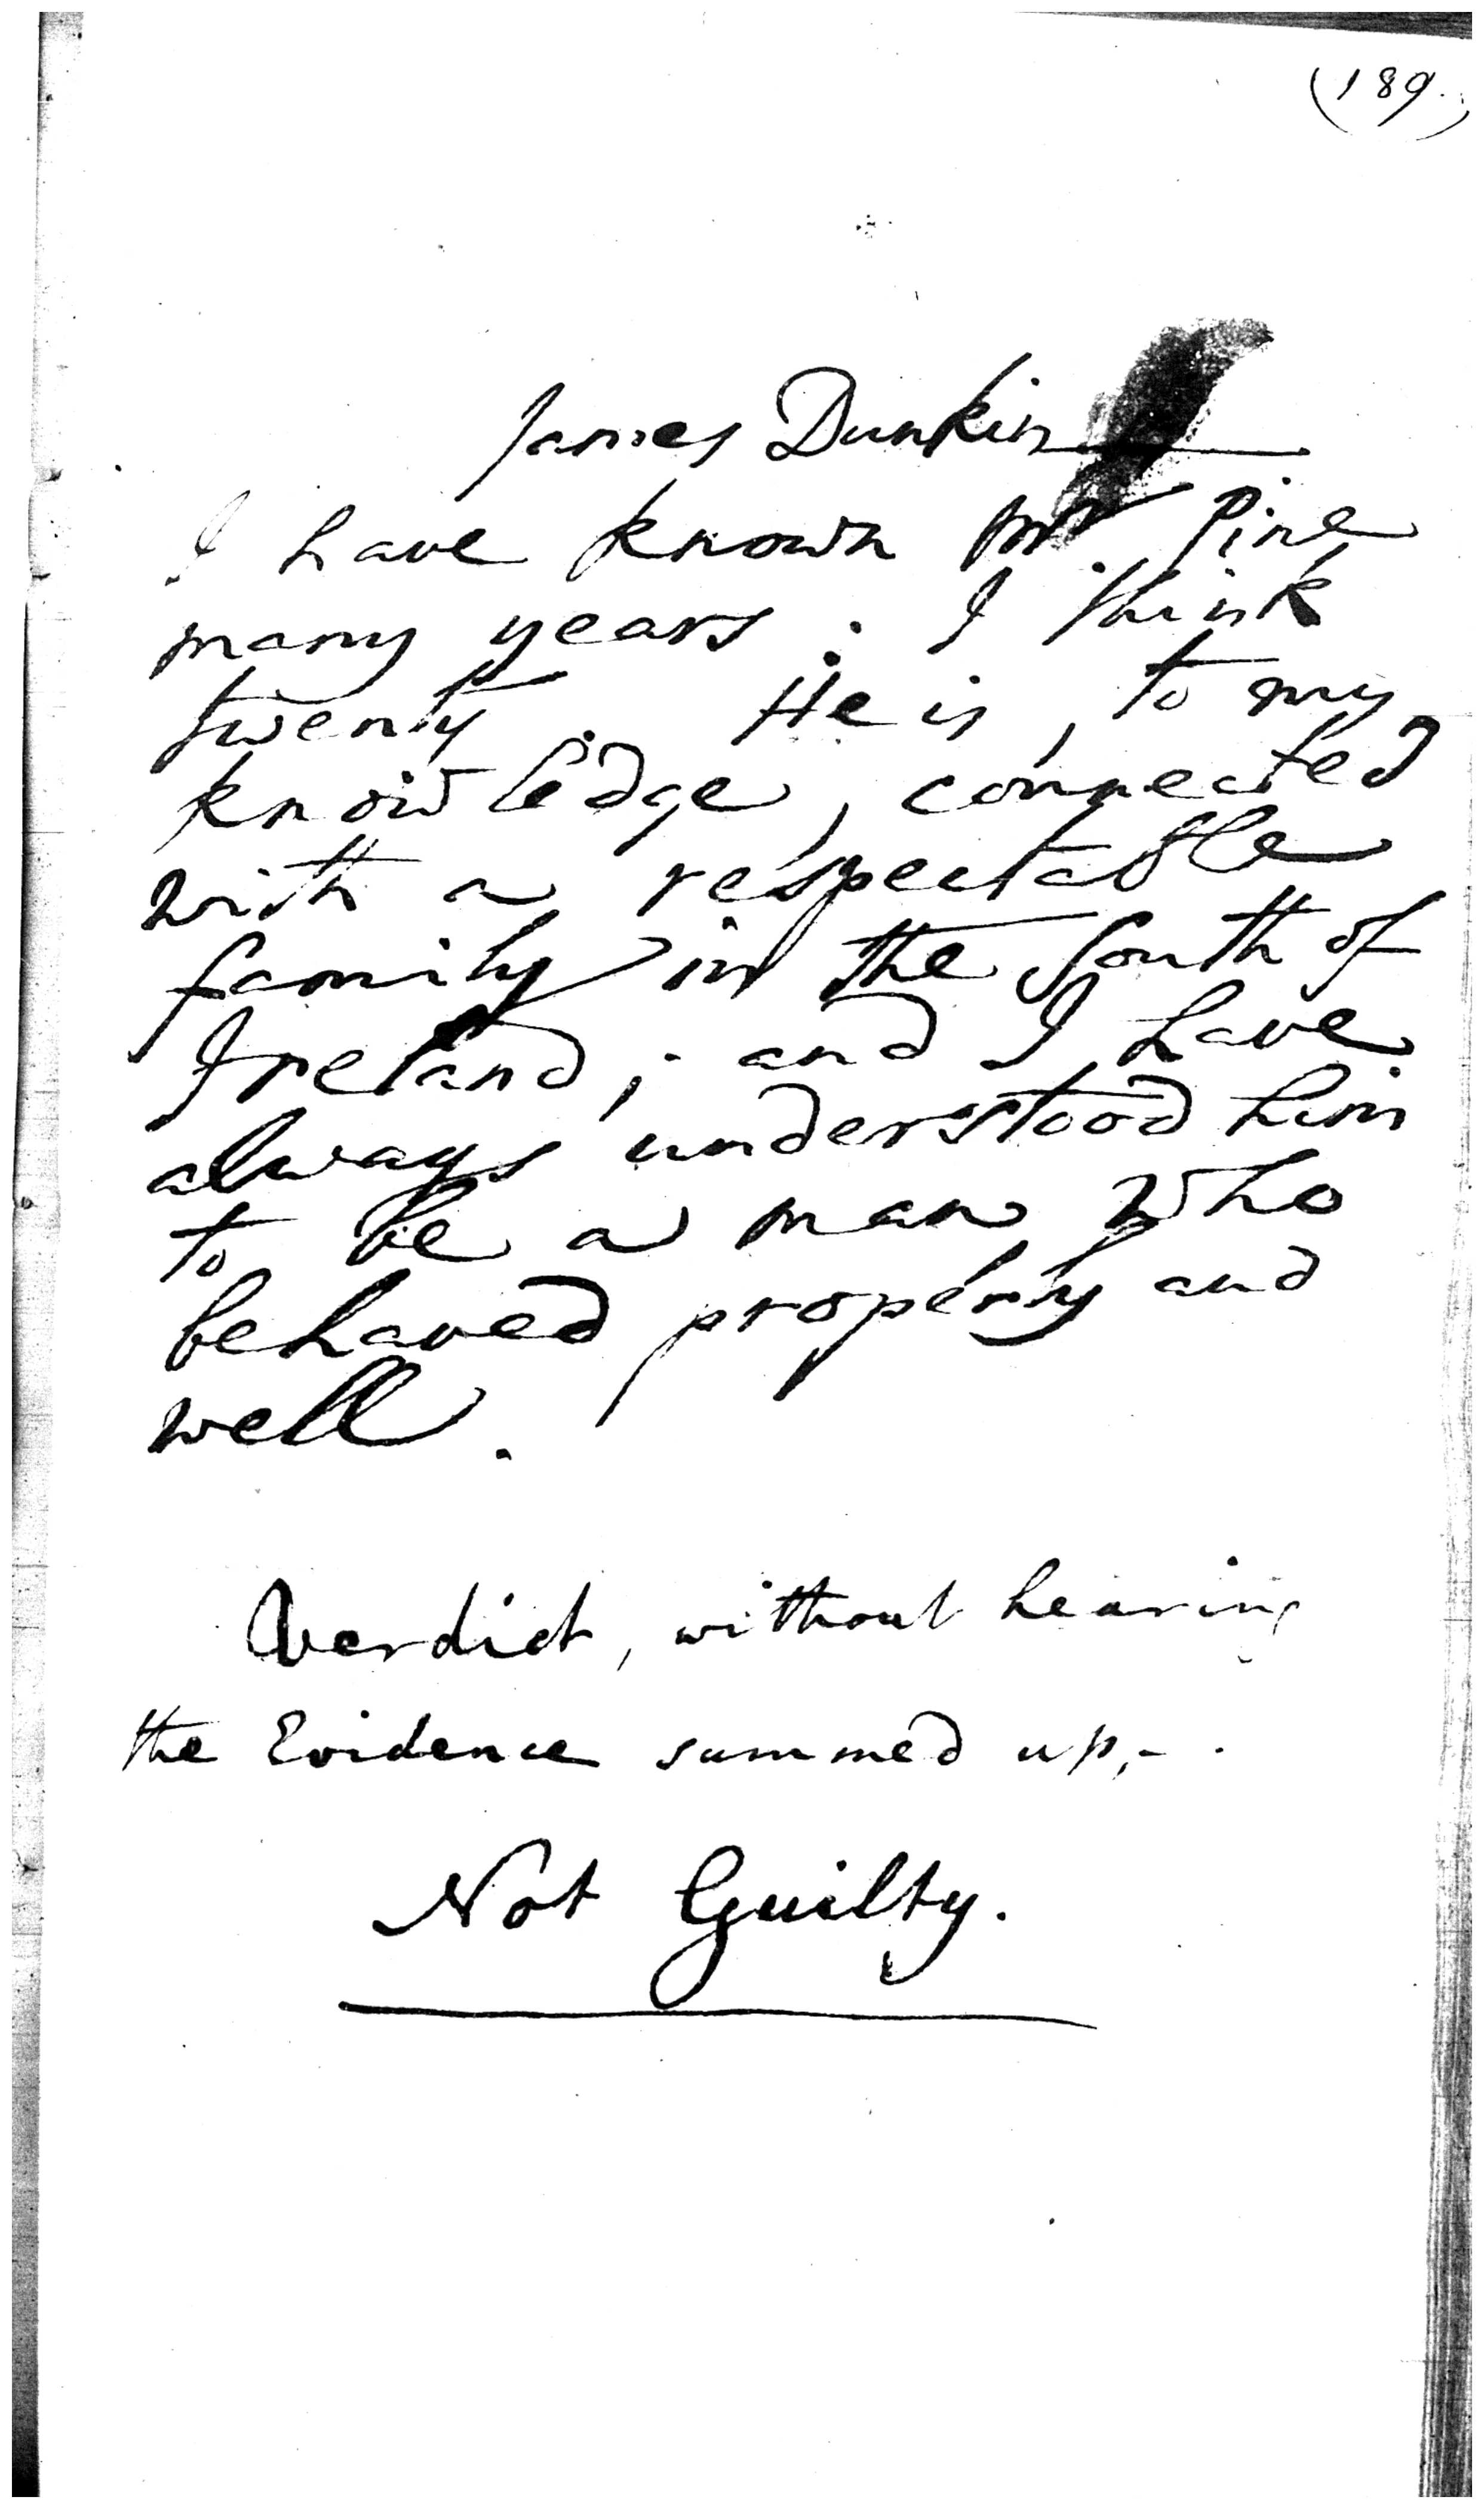 (189.)
James Dunkin
I have known Mr Pine
many years. I think
twenty. He is, to my
knowledge, connected
with a respectable
family in the South of
Ireland; and I have
always understood him
to be a man who
behaved properly and
well.
Verdict, without hearing
the Evidence summed up,-.
Not Guilty.